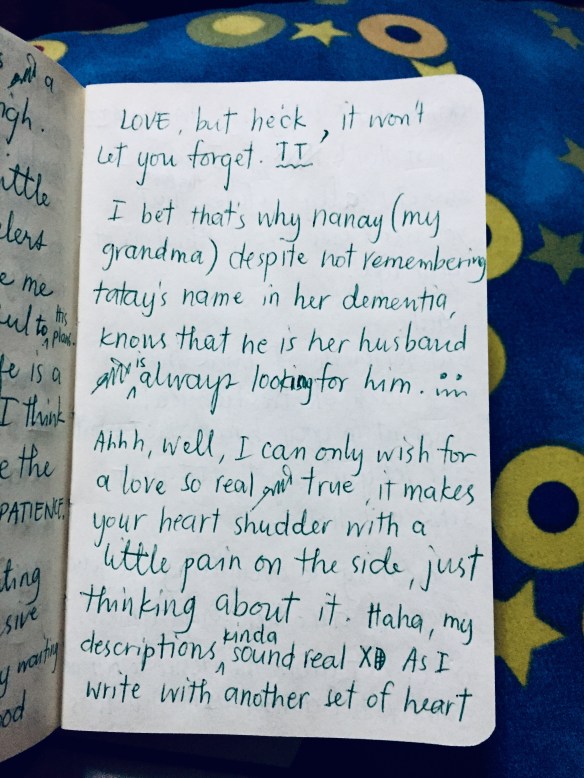 and a
igh.
ittle
lers
e me
ul to His plans.
fe is a
I think
e the
PATIENCE.
ting
sive
y waiting
ood
LOVE, but heck, it won't
let you forget. TT
I bet that's why nanay (my
grandma) despite not remembering
tatay's name in her dementia,
knows that he is her husband
and is always looking for him.
Ahhh, well, I can only wish for
a love so real and true, it makes
your heart shudder with a
little pain on the side, just
thinking about it. Haha, my
descriptions kinda sound real XD As I
write with another set of heart